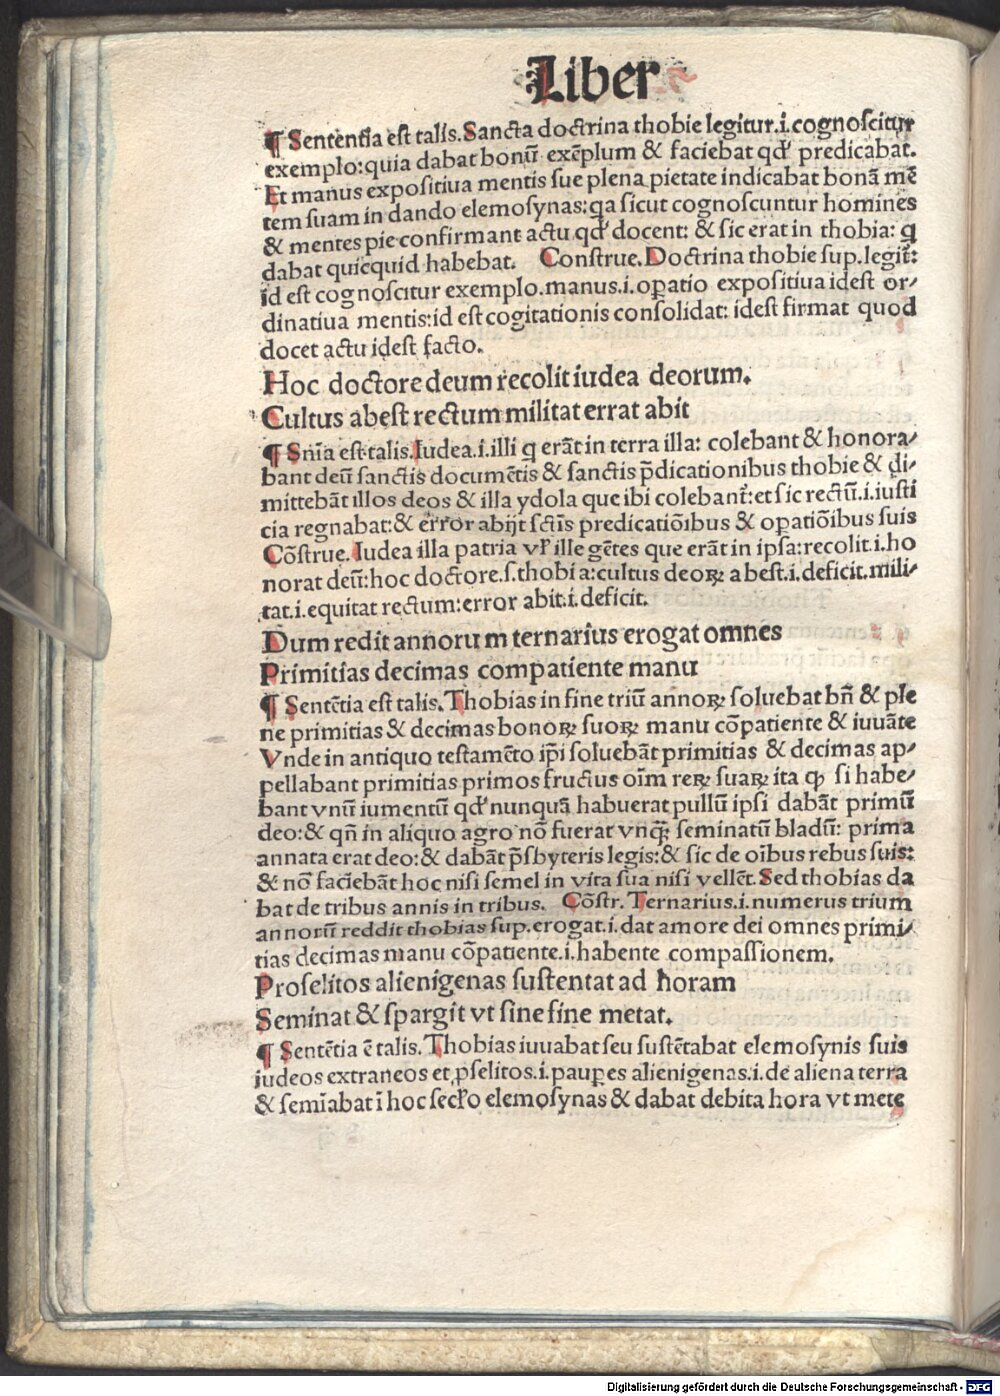 Liber
¶ Sententia est talis. Sancta doctrina thobie legitur .i. cognoscitur
exemplo: quia dabat bonū exēplum & faciebat qď predicabat.
Et manus expositiua mentis sue plena pietate indicabat bonā mē
tem suam in dando elemosynas: qa sicut cognoscuntur homines
& mentes pie confirmant actu qď docent: & sic erat in thobia: q
dabat quicquid habebat. Construe. Doctrina thobie sup. legit̄:
id est cognoscitur exemplo. manus .i. oꝑatio expositiua idest or/
dinatiua mentis: id est cogitationis consolidat: idest firmat quod
docet actu idest facto.
Hoc doctore deum recolit iudea deorum.
Cultus abest rectum militat errat abit
¶ Sn̄ia est talis. Iudea .i. illi q erāt in terra illa: colebant & honora/
bant deū sanctis documētis & sanctis p̄dicationibus thobie & di/
mittebāt illos deos & illa ydola que ibi colebant̄: et sic rectū .i. iusti
cia regnabat: & error abijt sctīs predicatiōibus & oꝑatiōibus suis
Cōstrue. Iudea illa patria vł ille gētes que erāt in ipsa: recolit .i. ho
norat deū: hoc doctore .s. thobia: cultus deoꝝ abest .i. deficit. mili/
tat .i. equitat rectum: error abit .i. deficit.
Dum redit annorum ternarius erogat omnes
Primitias decimas compatiente manu
¶ Sentētia est talis. Thobias in fine triū annoꝝ soluebat bn̄ & ple
ne primitias & decimas bonoꝝ suoꝝ manu cōpatiente & iuuāte
Vnde in antiquo testamēto ip̄i soluebāt primitias & decimas ap/
pellabant primitias primos fructus oīm reꝝ suaꝝ ita ꝙ si habe/
bant vnū iumentū qď nunquā habuerat pullū ipsi dabāt primū
deo: & qn̄ in aliquo agro nō fuerat vnqꝫ seminatū bladū: prima
annata erat deo: & dabāt p̄sbyteris legis: & sic de oībus rebus suis:
& nō faciebāt hoc nisi semel in vita sua nisi vellēt. Sed thobias da
bat de tribus annis in tribus. Cōstr. Ternarius .i. numerus trium
annorū reddit thobias sup. erogat .i. dat amore dei omnes primi/
tias decimas manu cōpatiente .i. habente compassionem.
Proselitos alienigenas sustentat ad horam
Seminat & spargit vt sine fine metat.
¶ Sentētia ē talis. Thobias iuuabat seu sustētabat elemosynis suis
iudeos extraneos et ꝓselitos .i. pauꝑes alienigenas .i. de aliena terra
& semīabat ī hoc secło elemosynas & dabat debita hora vt mete
Digitalisierung gefördert durch die Deutsche Forschungsgemeinschaft - DFG